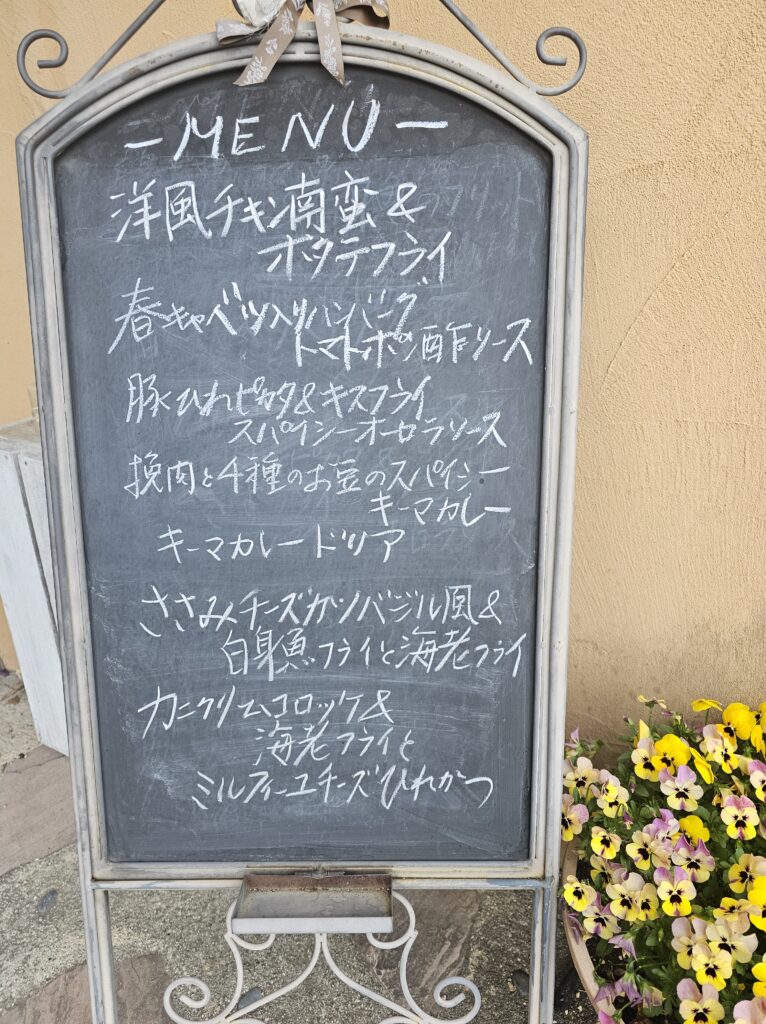 -MENU-
洋風チキン南蛮&
ホタテフライ
春キャベツ入りハンバーグ
トマトポン酢ソース
豚ひれピカタ&キスフライ
スパイシーオーロラソース
挽肉と4種のお豆のスパイシー
キーマカレー
キーマカレードリア
ささみチーズカツバジル風&
白身魚フライと海老フライ
カニクリームコロッケ&
海老フライと
ミルフィーユチーズひれかつ